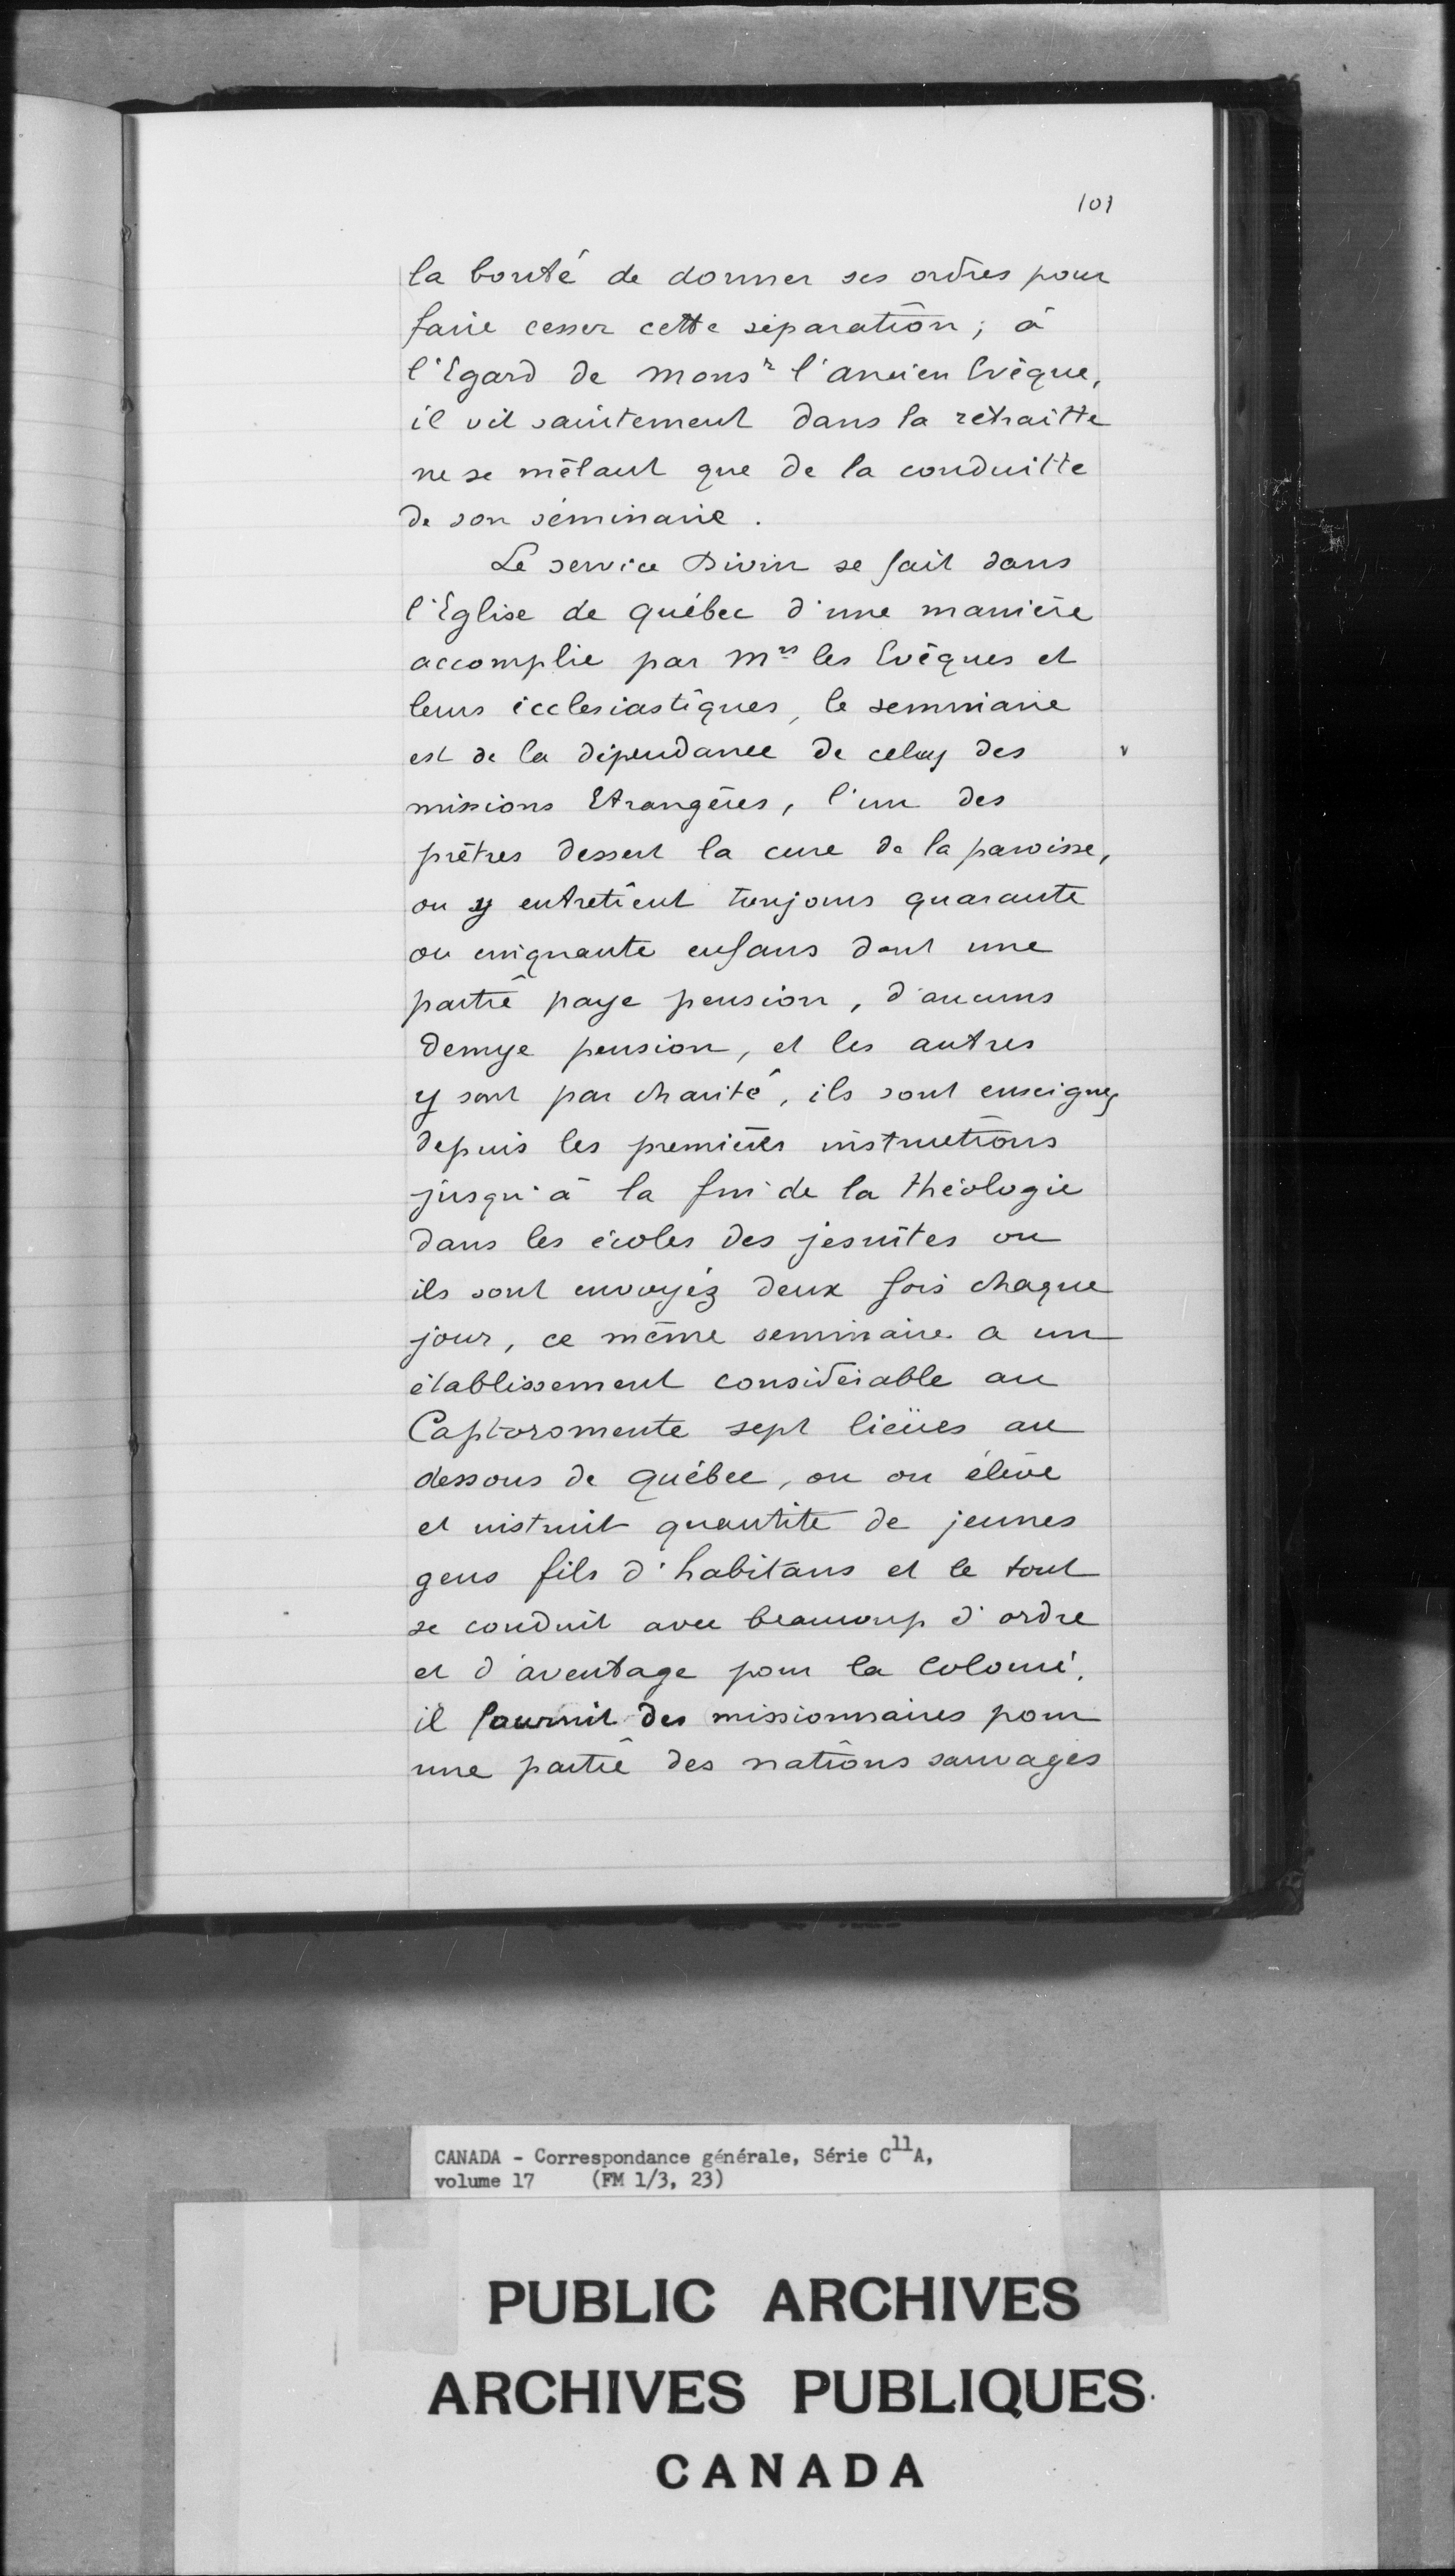 101
la bonté de donner ses ordres pour
faire cesser cette séparation ; à
l'Egard de Monsr l'ancien Evêque,
il vit saintement dans la retraitte
ne se mêlant que de la conduitte
de son séminaire.
Le service Divin se fait dans
l'Eglise de Québec d'une manière
accomplie par Mrs les Evêques et
leurs écclesiastiques, le seminaire
est de la dépendance de celuy des
missions Etrangères, l'un des
prêtres dessert la cure de la paroisse,
on y entretient toujours quarante
ou cinquante enfans dont une
partie paye pension, d'aucuns
demye pension, et les autres
y sont par charité, ils sont enseignez
depuis les premières instructions
jusqu'à la fin de la théologie
dans les écoles des jesuites ou
ils sont envoyéz deux fois chaque
jour, ce même seminaire a un
établissement considérable au
Captoromente sept lieües au
dessous de Québec, ou on élève
et instruit quantité de jeunes
gens fils d'habitans et le tout
se conduit avec beaucoup d'ordre
et d'aventage pour la Colonie.
il fournit des missionnaires pour
une partie des nations sauvages
CANADA - Correspondance générale, Série C11A,
volume 17 (FM 1/3, 23)
PUBLIC ARCHIVES
ARCHIVES PUBLIQUES
CANADA